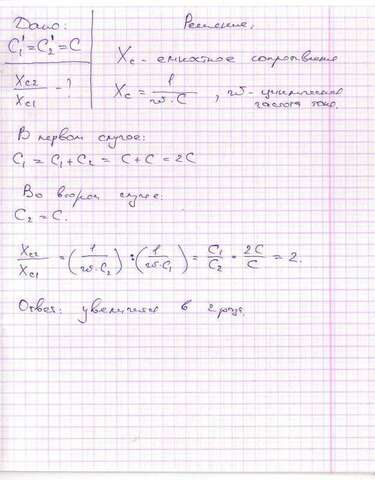 Дано:
C₁' = C₂' = C
Xc2/Xc1 - ?
Решение.
Xc - емкостное сопротивление
Xc = 1/(ω·C), ω - циклическая
частота тока.
В первом случае:
C₁ = C₁ + C₂ = C + C = 2C
Во втором случае
C₂ = C.
Xc2/Xc1 = (1/(ω·C₂)) : (1/(ω·C₁)) = C₁/C₂ = 2C/C = 2.
Ответ: увеличился в 2 раза.